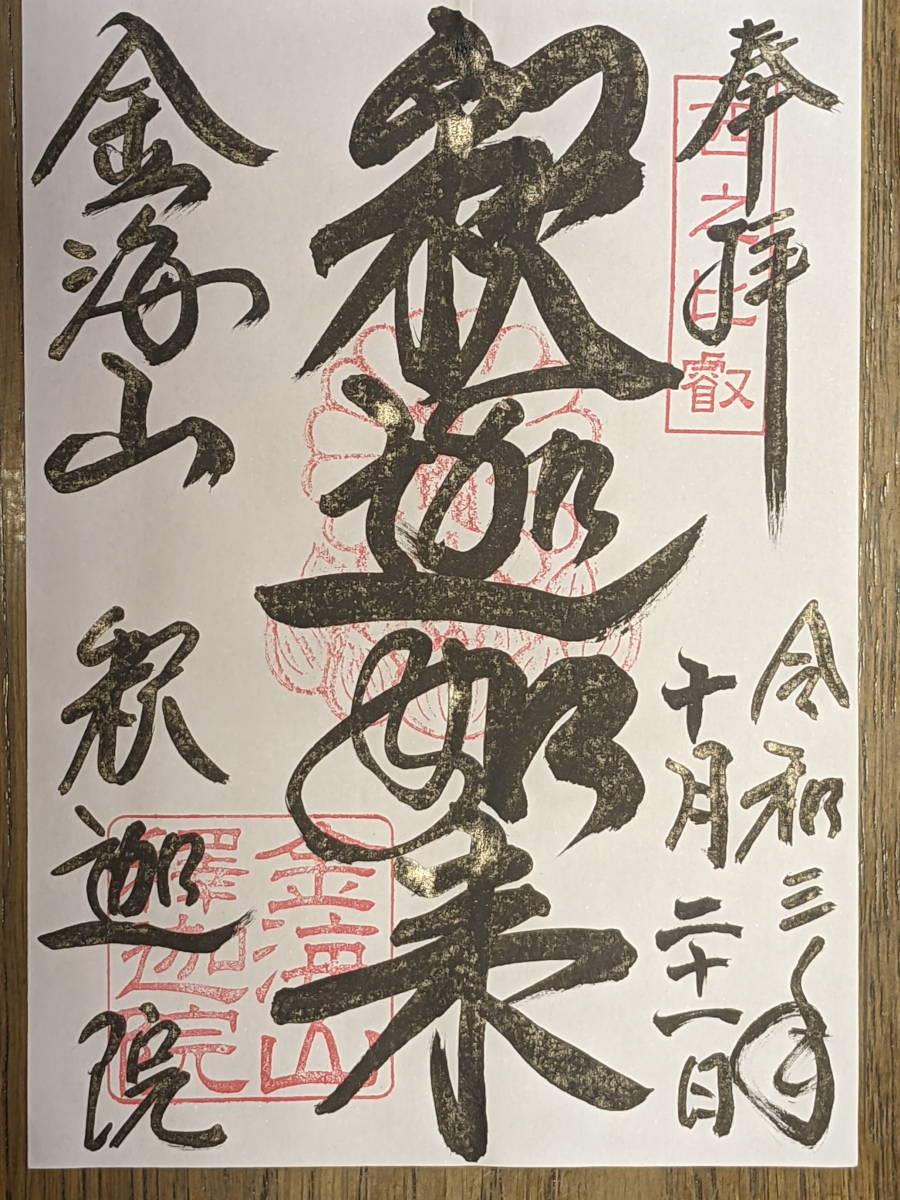 奉拝
西之比叡
令和三年
十月二十一日
釈迦如来
金海山
釈迦院
金海山
釋迦院